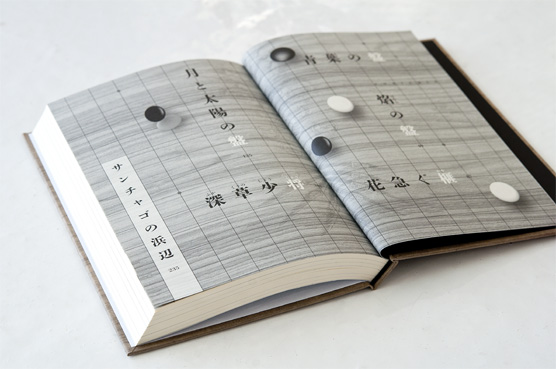 青葉の盤
焔の盤
花急ぐ榧
月と太陽の盤
深草少将
サンチャゴの浜辺
235